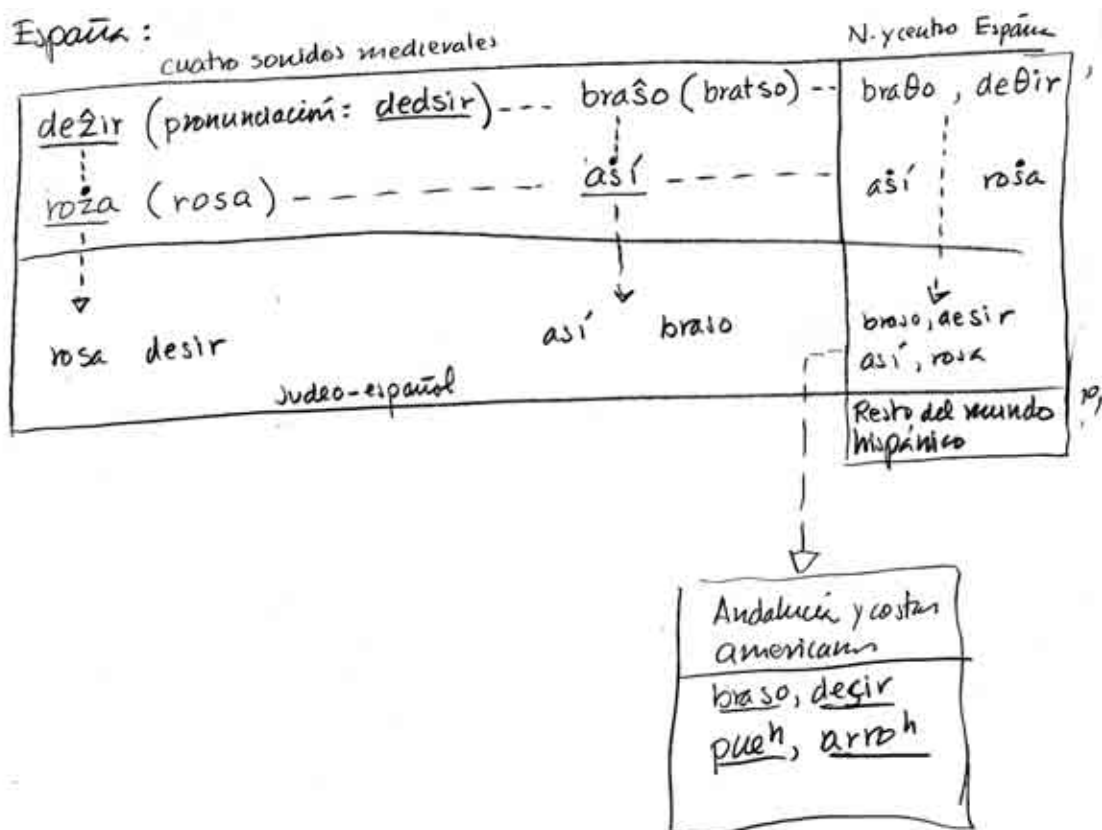 España:
cuatro sonidos medievales
N. y centro España
deẑir (pronunciación: dedsir) --- braŝo (bratso) -- braθo, deθir
roża (rosa) - - - - - - aṡí - - - - - aṡí roṡa
rosa desir así braso braso, desir
así, rosa
Judeo-español
Resto del mundo
hispánico
Andalucía y costas
americanas
braso, deçir
pueʰ, arroʰ